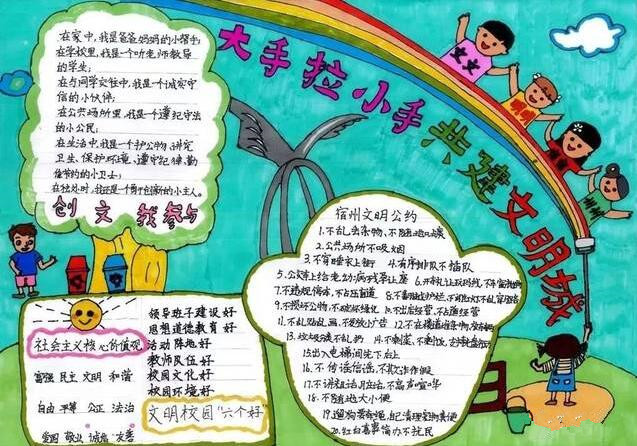 大手拉小手共建文明城
在家中,我是爸爸妈妈的小帮手;
在学校里,我是一个听老师教导
的学生;
在与同学交往中,我是一个诚实守
信的小伙伴;
在公共场所里,我是一个遵纪守法
的小公民;
在生活中,我是一个护公物、讲究
卫生、保护环境、遵守纪律、勤
俭节约的小卫士;
在独处时,我还是一个勇于创新的小主人。
创文我参与
社会主义核心价值观
富强 民主 文明 和谐
自由 平等 公正 法治
爱国 敬业 诚信 友善
领导班子建设好
思想道德教育好
活动阵地好
教师队伍好
校园文化好
校园环境好
文明校园"六个好"
宿州文明公约
1.不乱丢杂物、不随地吐痰
2.公共场所不吸烟
3.不穿睡衣上街
4.有序排队不插队
5.公交车上给老幼病残孕让座
7.不违规停车、不占压盲道
9.不损坏公物、不破坏绿化
10.不出店经营、不占道经营
11.不乱贴乱画、不发放小广告
15.出入电梯间先下后上
16.不传谣信谣、不欺诈作假
17.不讲粗话脏话、不高声喧哗
18.不随地大小便
20.红白喜事简办不扰民